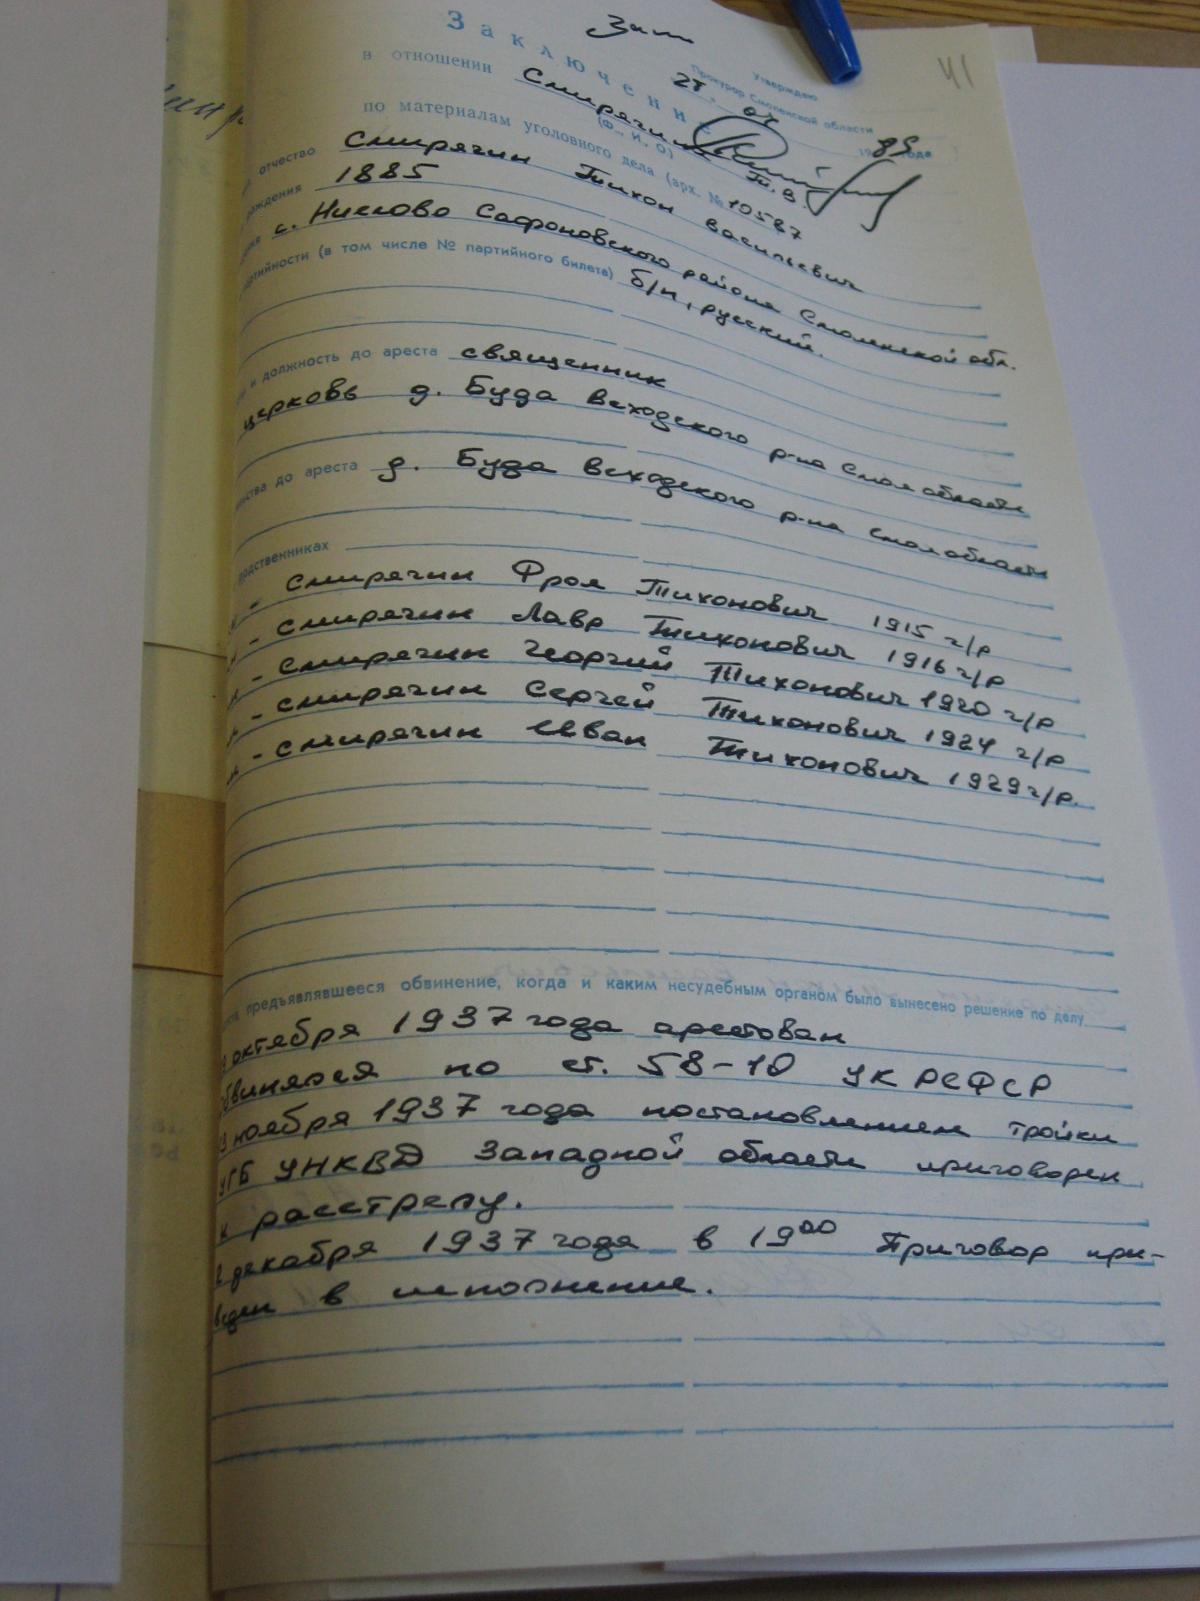 41
Зам
Утверждаю
Прокурор Смоленской области
04 1989 года
Заключение
в отношении Смирячин Т.В.
(Ф., И., О)
по материалам уголовного дела (арх. № 10587
отчество Смирячин Тихон Васильевич
рождения 1885
с. Сафоновского района Смоленской обл.
партийности (в том числе № партийного билета) б/п, русский.
и должность до ареста священник
церковь д. Буда Всходского р-на Смол области
до ареста д. Буда Всходского р-на Смол области
родственниках
- Смирячин Фрол Тихонович 1915 г/р
- Смирячин Лавр Тихонович 1916 г/р
- Смирячин Георгий Тихонович 1920 г/р
- Смирячин Сергей Тихонович 1924 г/р
- Смирячин Иван Тихонович 1929 г/р.
предъявлявшееся обвинение, когда и каким несудебным органом было вынесено решение по делу
октября 1937 года арестован
обвинялся по ст. 58-10 УК РСФСР
ноября 1937 года постановлением тройки
УГБ УНКВД Западной области приговорен
к расстрелу.
декабря 1937 года в 19 00 Приговор при-
веден в исполнение.